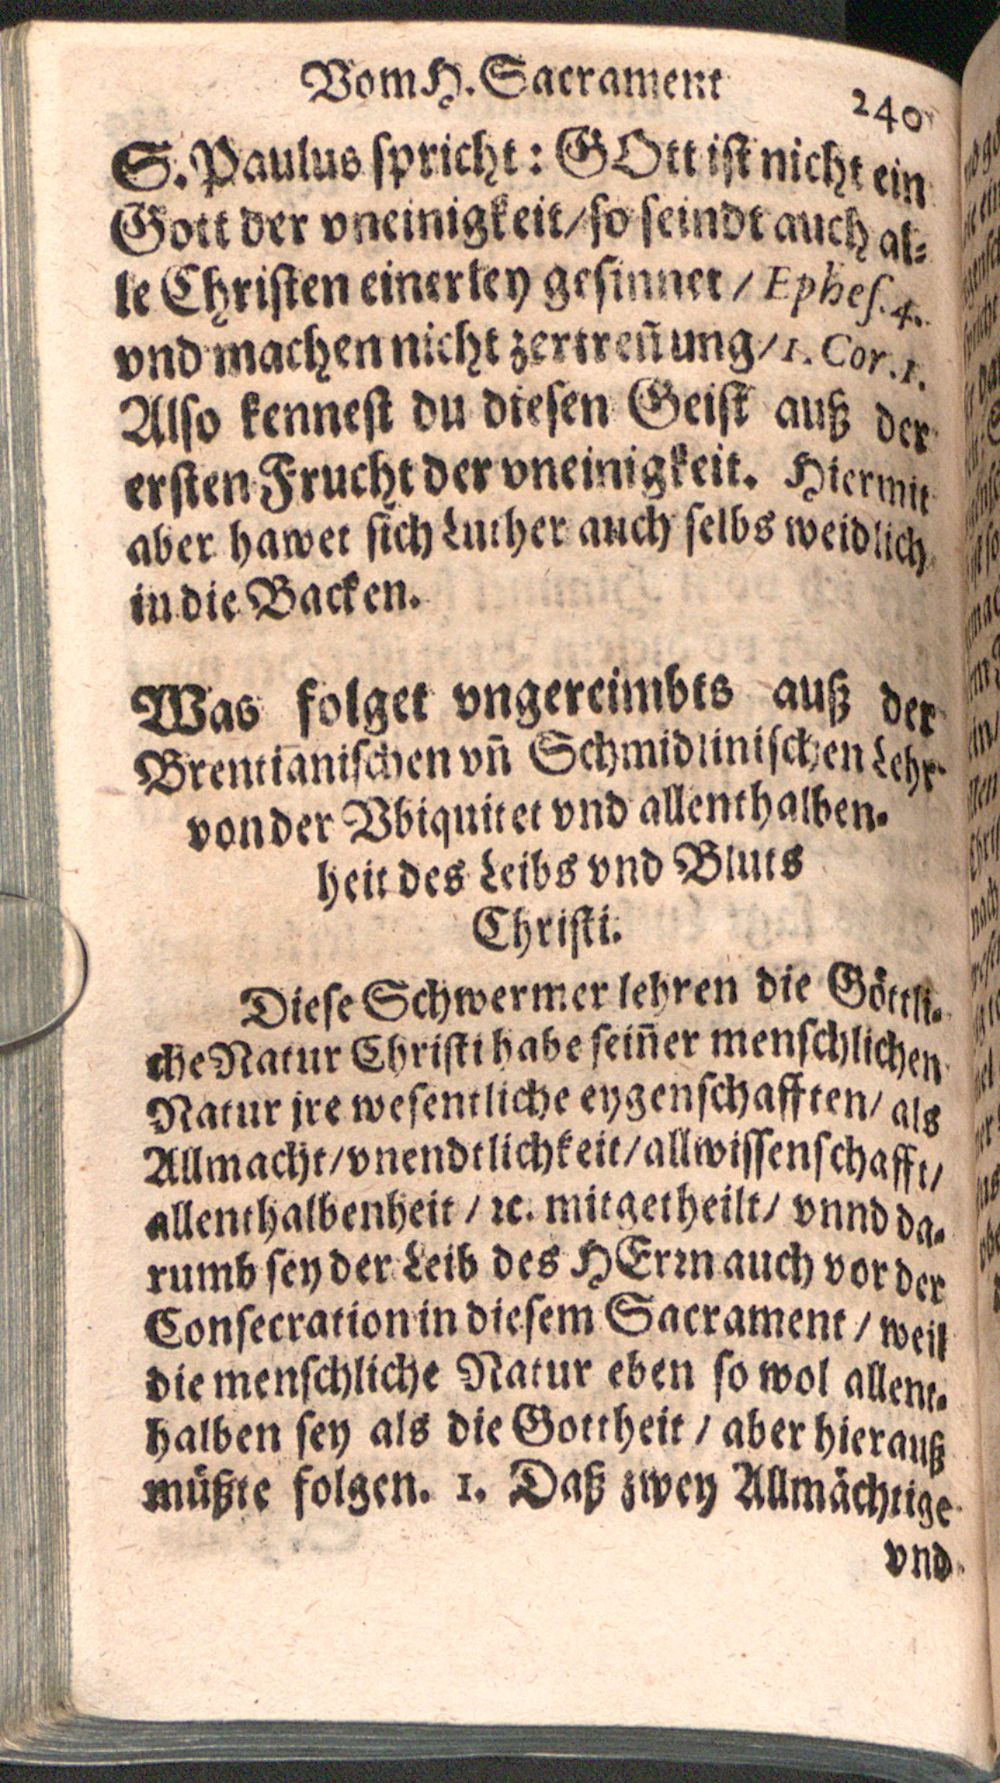 Vom H. Sacrament
240
S. Paulus spricht: GOtt ist nicht ein
Gott der vneinigkeit/ so seindt auch al-
le Christen einerley gesinnet / Ephes. 4.
vnd machen nicht zertreñung/ 1. Cor. 1.
Also kennest du diesen Geist auß der
ersten Frucht der vneinigkeit. Hiermit
aber hawet sich Luther auch selbs weidlich
in die Backen.
Was folget vngereimbts auß der
Brentianischen vñ Schmidlinischen Lehr
von der Vbiquitet vnd allenthalben-
heit des Leibs vnd Bluts
Christi.
Diese Schwermer lehren die Göttli-
che Natur Christi habe seiñer menschlichen
Natur jre wesentliche eygenschafften/ als
Allmacht/ vnendtlichkeit/ allwissenschafft/
allenthalbenheit / ꝛc. mitgetheilt/ vnnd da-
rumb sey der Leib des HErꝛn auch vor der
Consecration in diesem Sacrament / weil
die menschliche Natur eben so wol allent-
halben sey als die Gottheit / aber hierauß
müßte folgen. 1. Daß zwey Allmächtige
vnd